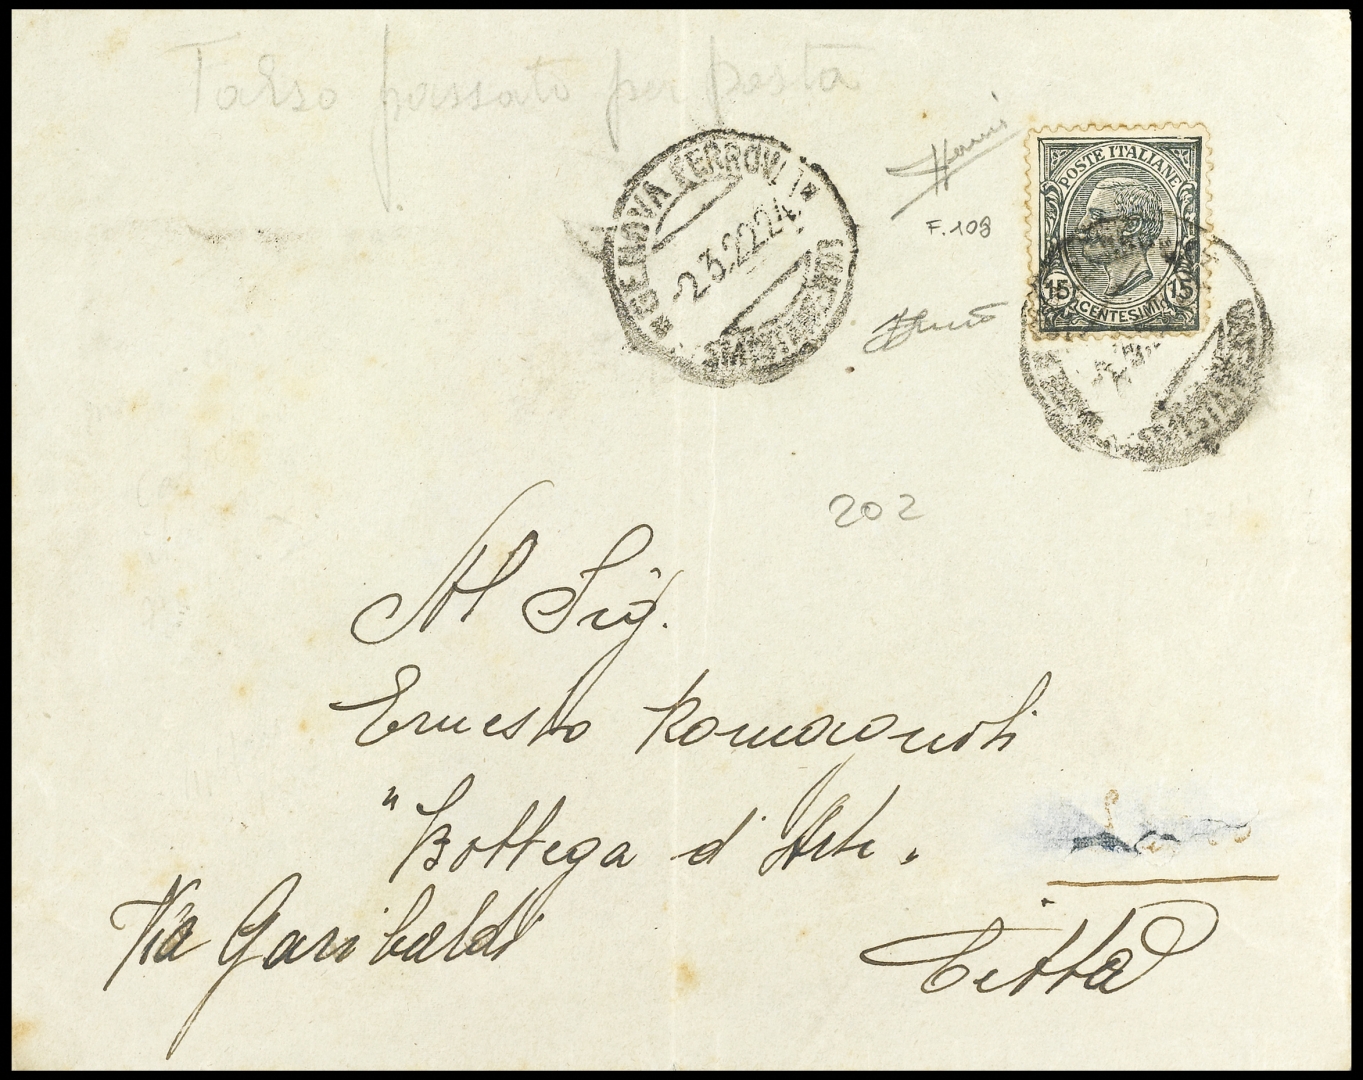 Falso passato per posta
GENOVA FERROVIA
2.3.22 24
POSTE ITALIANE
F. 108
15 CENTESIMI 15
202
Al Sig.
Ernesto Romagnoli
"Bottega d'Arte"
Via Garibaldi
Città